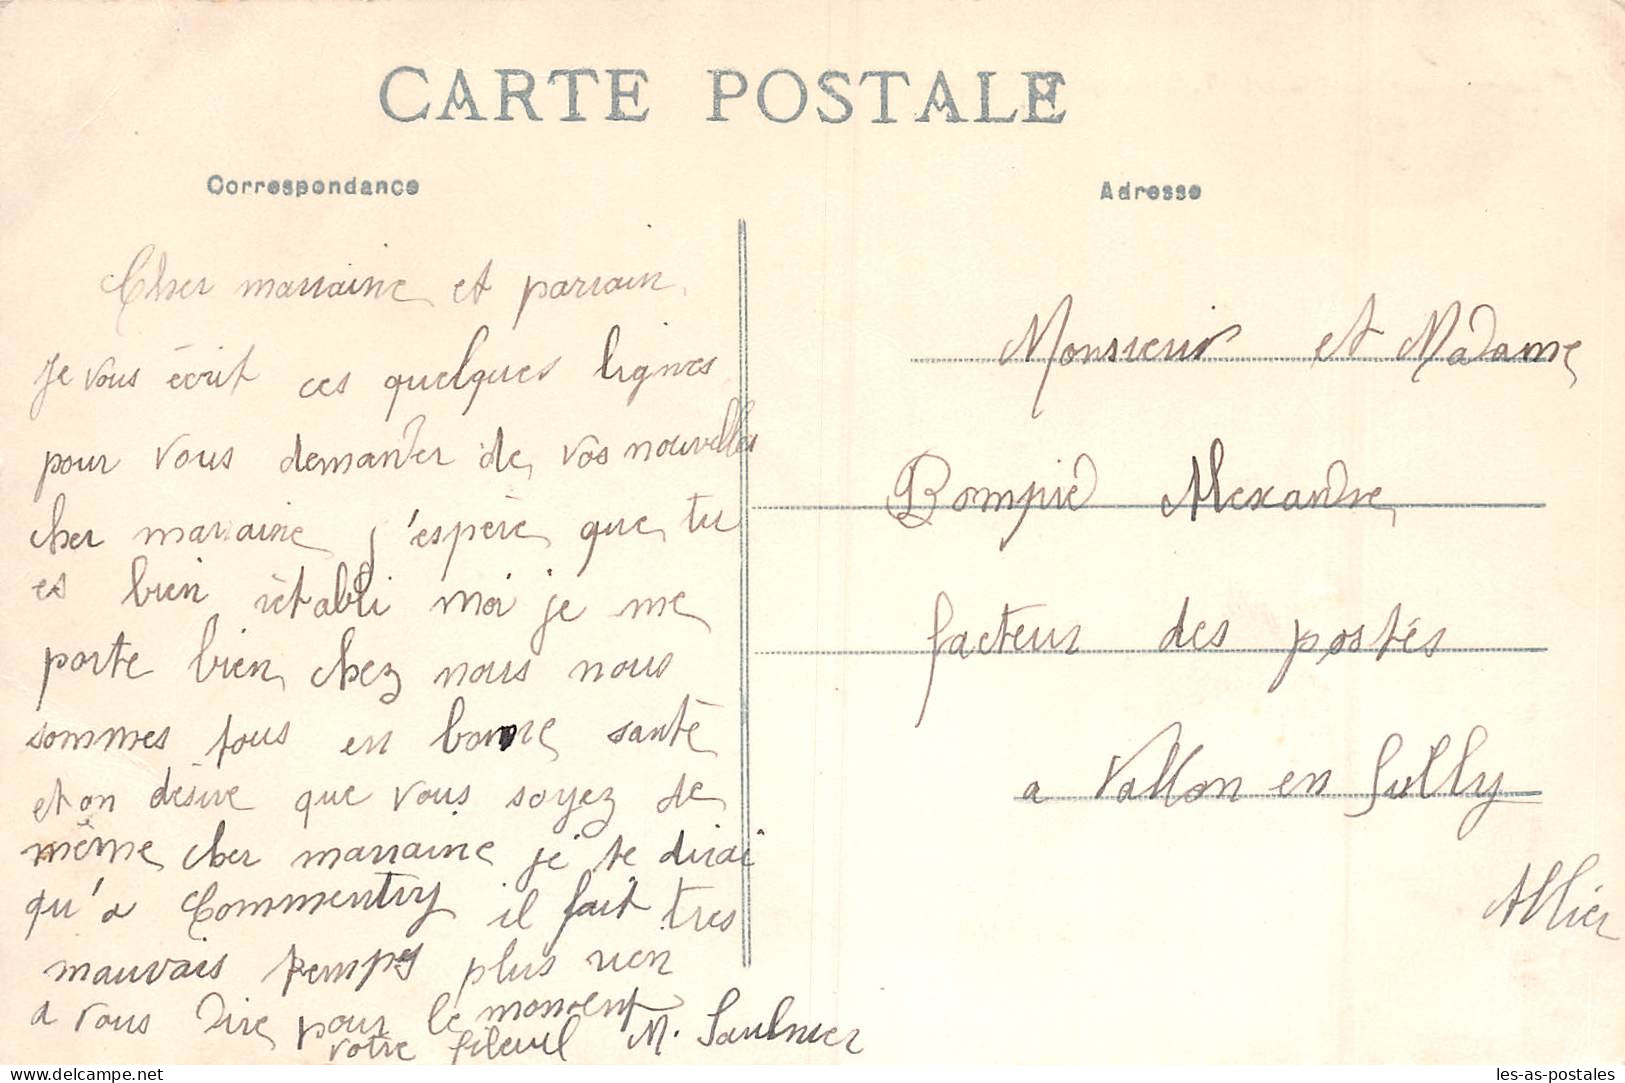 CARTE POSTALE
Correspondance
Cher marraine et parrain
je vous écrit ces quelques lignes
pour vous demander de vos nouvelles
cher marraine j'espère que tu
es bien rétabli moi je me
porte bien chez nous nous
sommes tous en bonne santé
et on désire que vous soyez de
même cher marraine je te dirai
qu'a Commentry il fait tres
mauvais temps plus rien
a vous dire pour le moment
votre fileuil M. Saulnier
Adresse
Monsieur et Madame
Bompied Alexandre
facteur des postes
a Vallon en Sully
Allier
Delcampe.net
les-as-postales